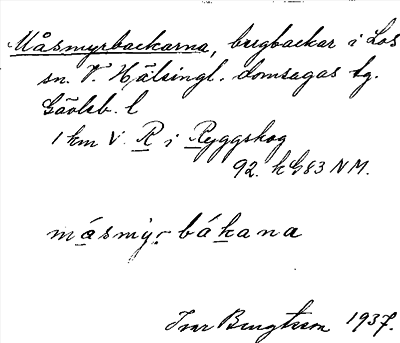 Måsmyrbackarna, bergbackar i Los
sn. V. Hälsingl. domsagas tg.
Gävleb. l
1 km V. R i Ryggskog
92. k G83 NM.
másmýr bákana
Ivar Bengtsson 1937.